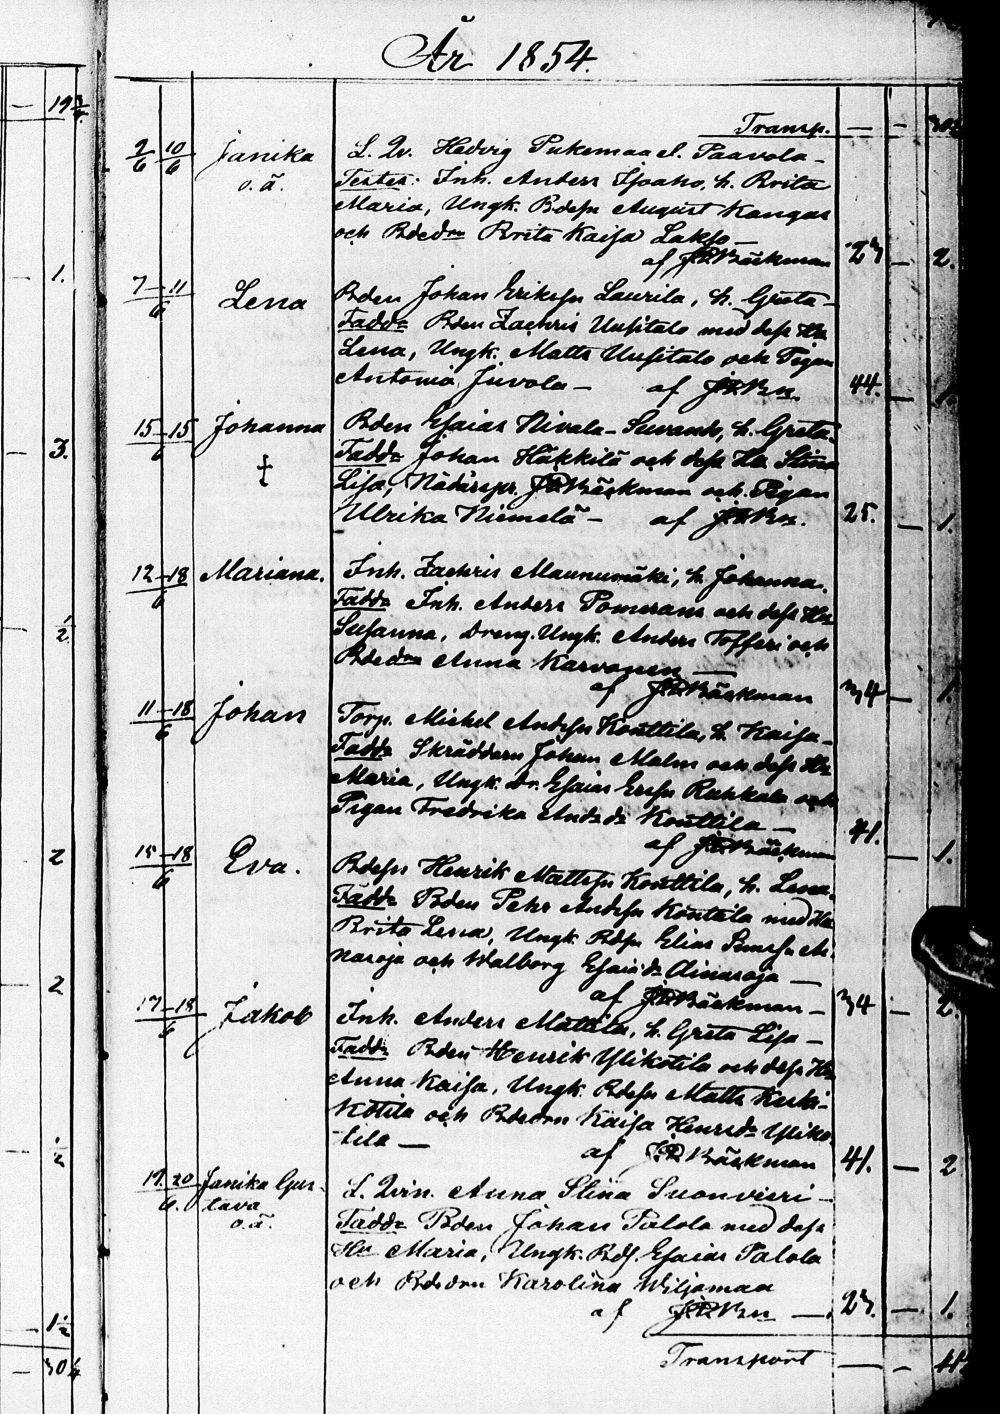 År 1854.
Transp. — —
2/6 10/6 Janika L. Qv. Hedvig Pukema
o. ä. Testes: Inh. Anders Isoaho, h. Brita
Maria, Ungk. Bdesn August Kangas
och Bdedn Brita Kaisa Lakso —
af J.P. Bäckman 27 — 2.
7–11/6 Lena Bden Johan Eriksn Laurila, h. Greta —
Fadd. Bden Zachris Uusitalo med dess Hu
Lena, Ungk. Matts Uusitalo och Pigan
Antonia Juvola — af J.P. Bn. 44. — 1.
15–15/6 Johanna Bden Esaias Nivala-Suvanto, h. Greta.
† Fadd. Johan Häkkilä och dess Hu Stina
Lisa, J.P. Bäckman och Pigan
Ulrika Niemelä — af J.P. Bn. 25. — 1.
12–18/6 Mariana. Inh. Zachris Maunumäki, h. Johanna.
Fadd. Inh. Anders Pomerans och dess Hu
Susanna, Dreng. Ungk. Anders Tofferi och
Bdedn Anna Karvonen —
af J.P. Bäckman 34 — 1.
11–18/6 Johan Torp. Michel Andssn Konttila, h. Kaisa —
Fadd. Skräddern Johan Malm och dess Hu
Maria, Ungk. Dr. Esaias Erssn Ruhkala och
Pigan Fredrika Andsdr Konttila —
af J.P. Bäckman 41. — 1.
15–18/6 Eva. Bdesn Henrik Mattssn Konttila, h. Lena.
Fadd. Bden Pehr Andssn Konttila med Hu
Brita Lena, Ungk. Bdsn Elias
och Walborg Esaiidr Ainasoja —
af J.P. Bäckman — 34 — 2.
17–18/6 Jakob Inh. Anders Mattila, h. Greta Lisa —
Fadd. Bden Henrik Ylikotila och dess Hu
Anna Kaisa, Ungk. Bdesn Matts Keski-
kotila och Bdedrn Kaisa Henrsdr Yliko-
tila — af J.P. Bäckman 41. — 2
19 20/6. Janika Gus- L. Qvin. Anna Stina Suonvieri —
tava Fadd. Bden Johan Palola med dess
o. ä. Hu Maria, Ungk. Bds. Esaias Palola
och Bdedrn Karolina Wiljamaa
af J.P. Bn —. 27. — 1.
Transport — —
19 3/4.
1.
3.
1/2.
2
2
1/2
1 1/2
30 1/4